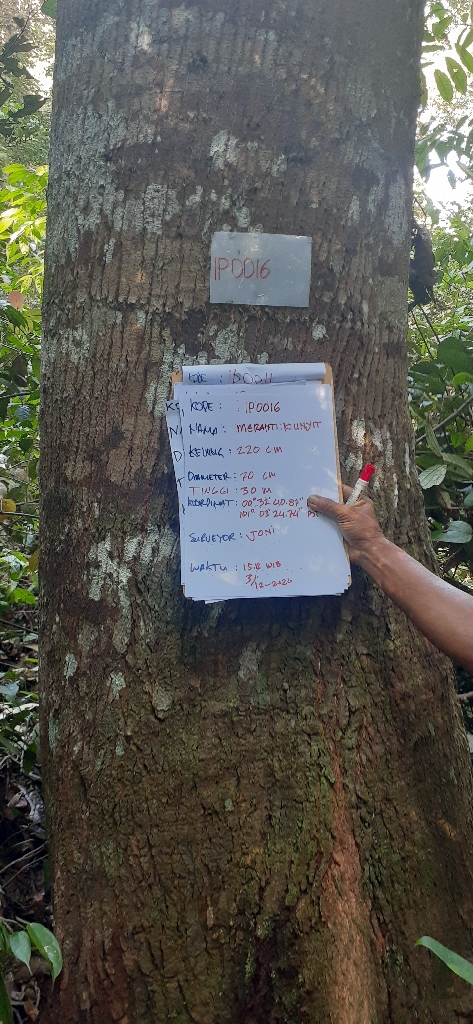 IP0016
KODE : IP0016
NAMA : MERANTI KUNYIT
KELILING : 220 CM
DIAMETER : 70 CM
TINGGI : 30 M
KOORDINAT : 00° 32' 40.87"
101° 03' 24.74"
SURVEYOR : JONI
WAKTU : 15.12 WIB
3/12-2020